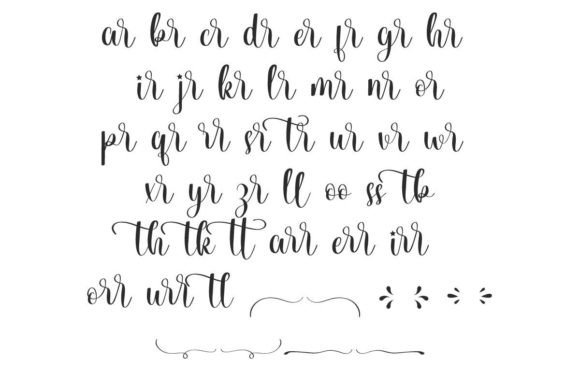 ar br cr dr er fr gr hr
ir jr kr lr mr nr or
pr qr rr sr tr ur vr wr
xr yr zr ll oo ss tb
th tk tt arr err irr
orr urr tl